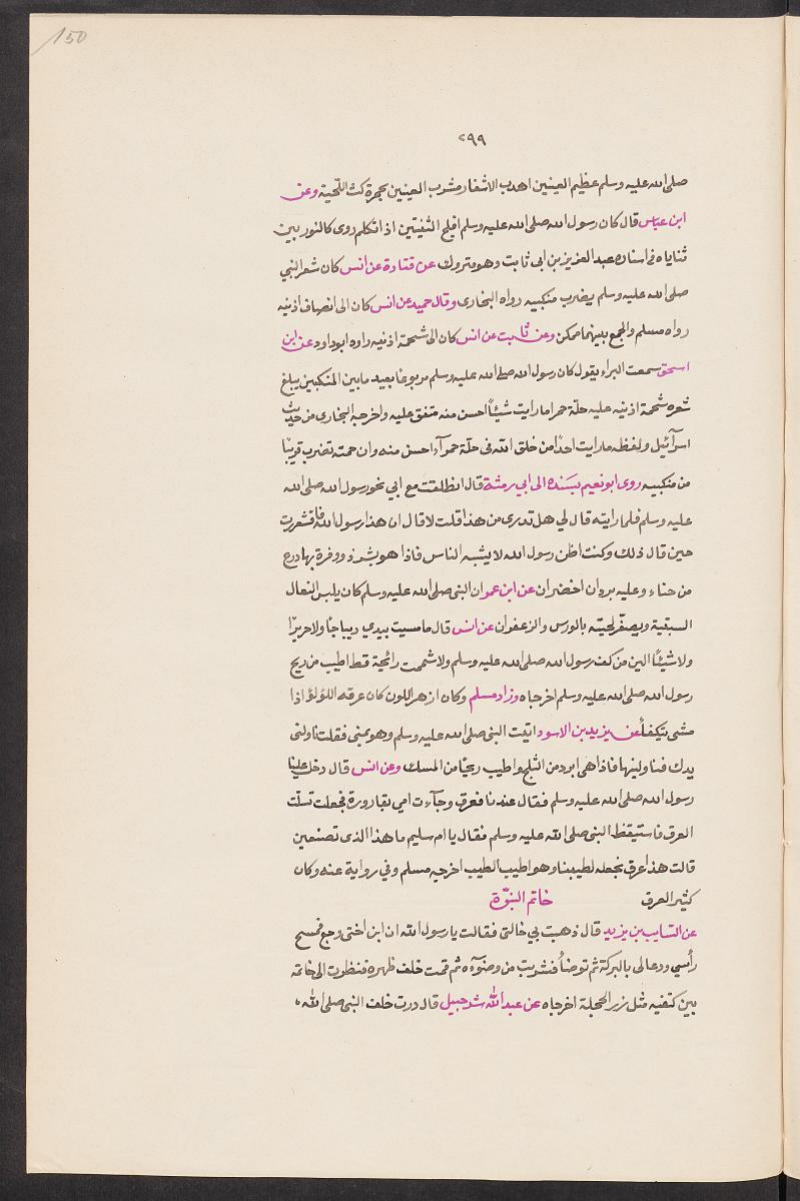 150
٢٩٩
صلى الله عليه وسلم عظيم العينين اهدب الاشفار مشوب العينين بحمرة كث اللحية وعن
ابن عباس قال كان رسول الله صلى الله عليه وسلم افلج الثنيتين اذا تكلم روى كالنور بين
ثناياه في اسناده عبد العزيز بن ابى ثابت وهو متروك عن قتادة عن انس كان شعر النبي
صلى الله عليه وسلم يضرب منكبيه رواه البخارى وقال حميد عن انس كان الى انصاف اذنيه
رواه مسلم والجمع بينهما ممكن وعن ثابت عن انس كان الى شحمة اذنيه راوه ابو داود عن ابن
اسحق سمعت البراء يقول كان رسول الله صلى الله عليه وسلم مربوعا بعيد مابين المنكبين يبلغ
شعره شحمة اذنيه عليه حلّة حمرا مارايت شيئاً احسن منه متفق عليه واخرجه البخارى من حديث
اسرآئيل ولفظه مارايت احدًا من خلق الله فى حلّة حمرآء احسن منه وان جمته تضرب قريبًا
من منكبيه روى ابو نعيم بسنده الى ابي رمثة قال انطلقت مع ابي نحو رسول الله صلى الله
عليه وسلم فلما رايته قال لي هل تدرى من هذا قلت لا قال ان هذا رسول الله فاقشعررت
حين قال ذلك وكنت اظن رسول الله لا يشبه الناس فاذا هو بشر ذو وفرة بها درع
من حناء وعليه بردان اخضران عن ابن عمر ان النبى صلى الله عليه وسلم كان يلبس النعال
السبتية ويصفّر لحيته بالورس والزعفران عن انس قال مامسيت بيدي ديباجًا ولا حريرًا
ولا شيئًا الين من كف رسول الله صلى الله عليه وسلم ولا شممت رائحة قط اطيب من ريح
رسول الله صلى الله عليه وسلم اخرجاه وزاد مسلم وكان ازهر اللون كان عرقه اللؤلؤ اذا
مشى يتكفأ عن يزيد بن الاسود اتيت النبى صلى الله عليه وسلم وهو بمنى فقلت ناولنى
يدك فناولينها فاذا هى ابرد من الثلج واطيب ريحًا من المسك وعن انس قال دخل علينا
رسول الله صلى الله عليه وسلم فقال عندنا فعرق وجآءت امي بقارورة فجعلت تسلت
العرق فاستيقظ النبى صلى الله عليه وسلم فقال يا ام سليم ما هذا الذى تصنعين
قالت هذا عرق نجعله لطيبنا وهو اطيب الطيب اخرجه مسلم وفي رواية عنه وكان
كثير العرق خاتم النبوّة
عن السايب بن يزيد قال ذهبت بي خالتى فقالت يا رسول الله ان ابن اختى وجع فمسح
رأسي ودعا لى بالبركة ثم توضأ فشربت من وضوءه ثم قمت خلف ظهره فنظرت الى خاتمه
بين كتفيه مثل زر الحجلة اخرجاه عن عبد الله شرجبيل قال درت خلف النبى صلى الله